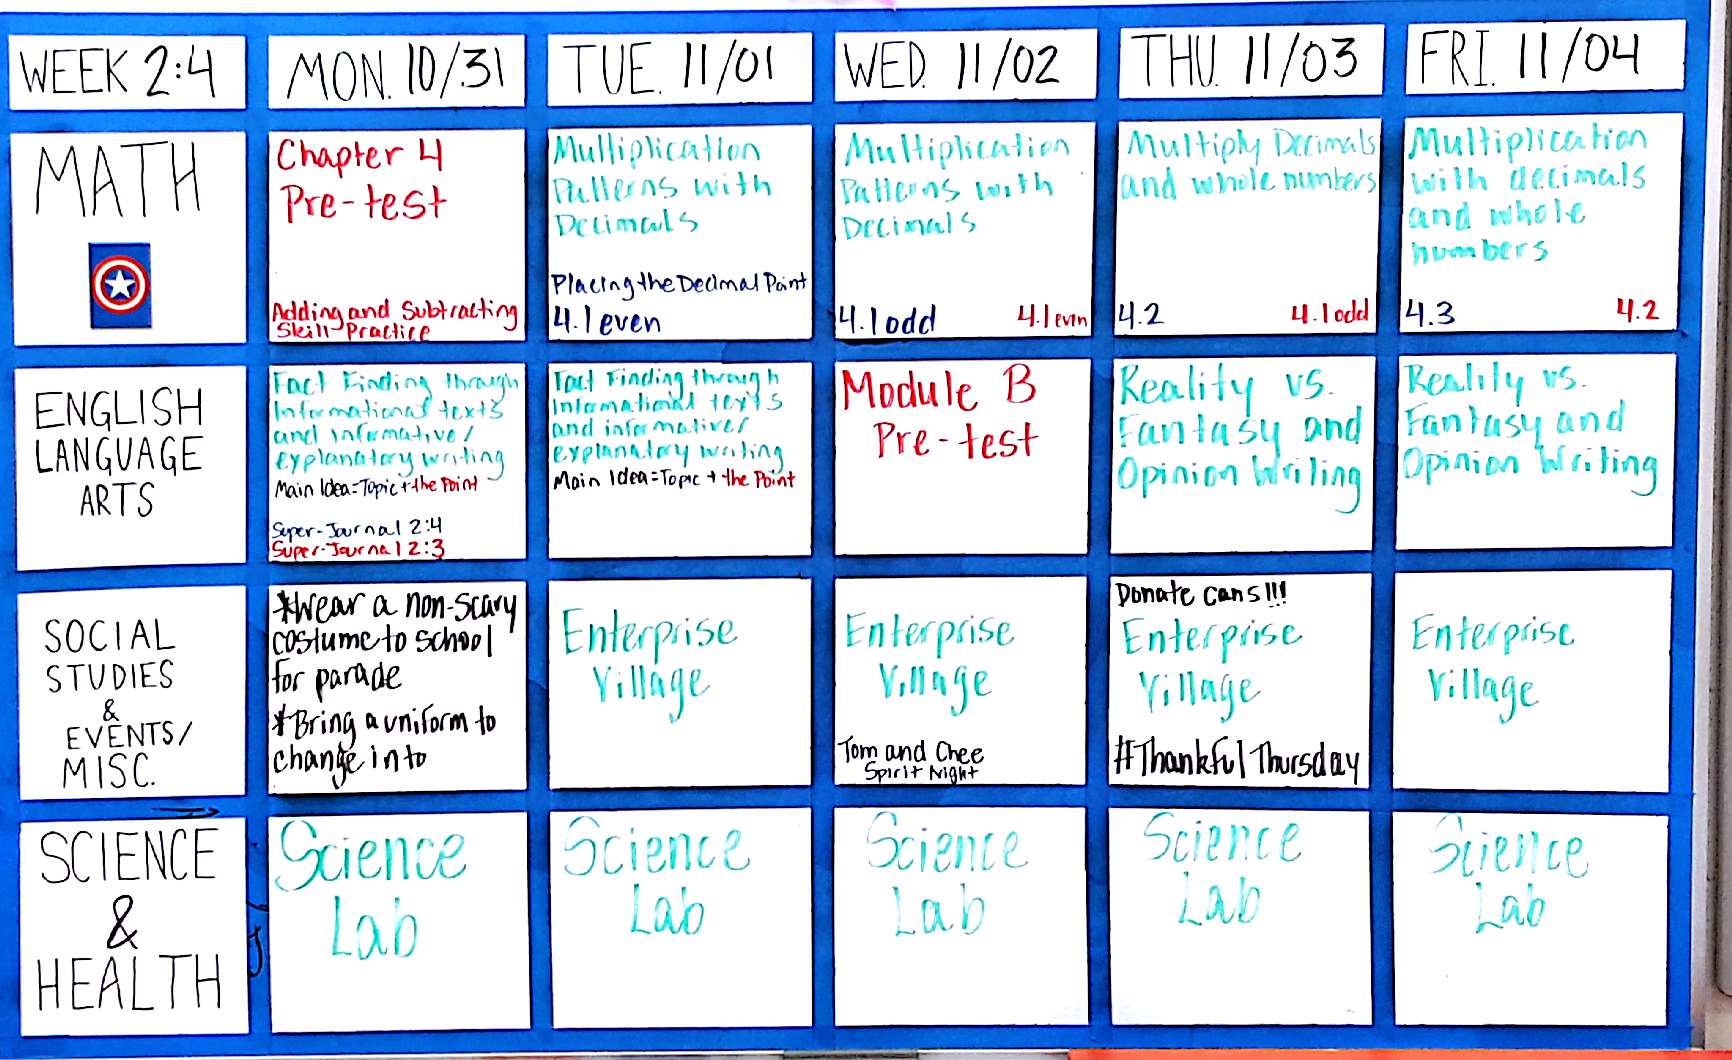 WEEK 2:4
MON. 10/31
TUE. 11/01
WED. 11/02
THU. 11/03
FRI. 11/04
MATH
Chapter 4
Pre-test
Adding and Subtracting
Skill Practice
Multiplication
Patterns with
Decimals
Placing the Decimal Point
4.1 even
Multiplication
Patterns with
Decimals
4.1 odd 4.1 even
Multiply Decimals
and whole numbers
4.2 4.1 odd
Multiplication
with decimals
and whole
numbers
4.3 4.2
ENGLISH
LANGUAGE
ARTS
Fact Finding through
Informational texts
and informative/
explanatory writing
Main Idea=Topic + the Point
Super-Journal 2:4
Super-Journal 2:3
Fact Finding through
Informational texts
and informative/
explanatory writing
Main Idea=Topic + the Point
Module B
Pre-test
Reality vs.
Fantasy and
Opinion Writing
Reality vs.
Fantasy and
Opinion Writing
SOCIAL
STUDIES
&
EVENTS/
MISC.
*Wear a non-scary
costume to school
for parade
*Bring a uniform to
change into
Enterprise
Village
Enterprise
Village
Tom and Chee
Spirit Night
Donate cans!!!
Enterprise
Village
#Thankful Thursday
Enterprise
Village
SCIENCE
&
HEALTH
Science
Lab
Science
Lab
Science
Lab
Science
Lab
Science
Lab